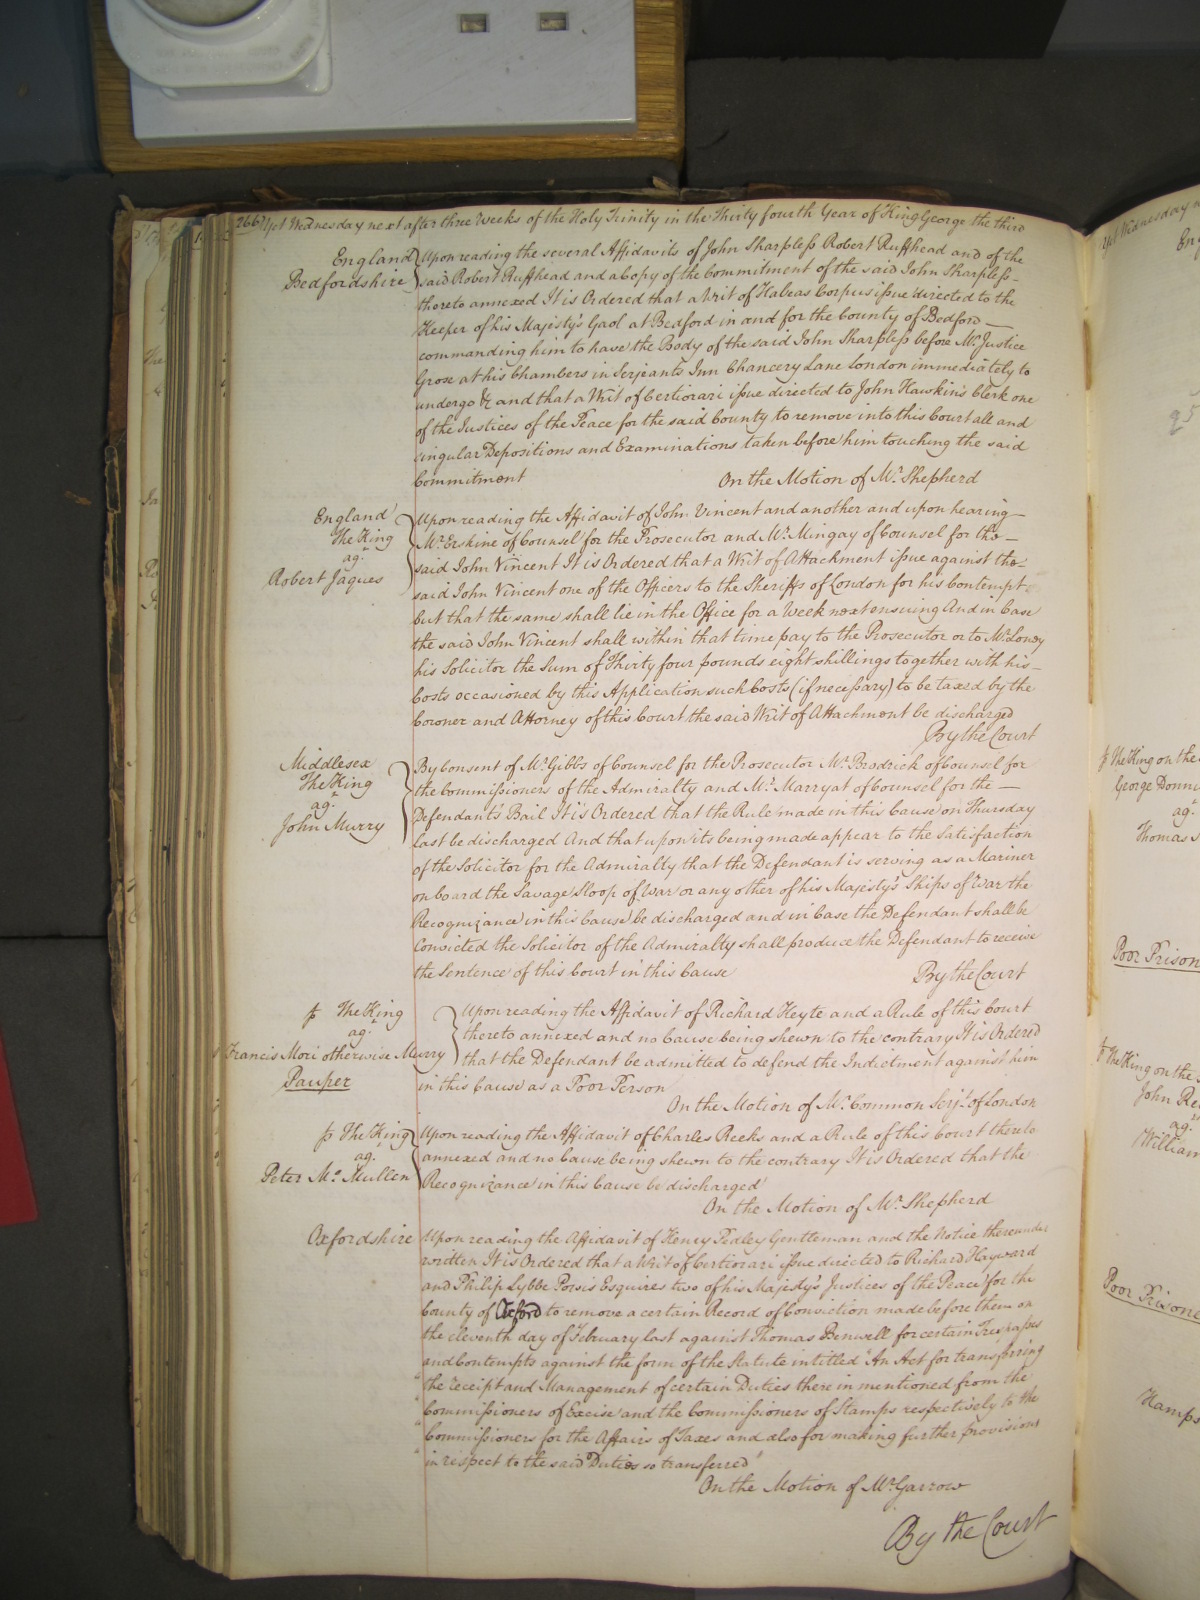 266 Yet Wednesday next after three Weeks of the Holy Trinity in the Thirty fourth Year of King George the third
England
Bedfordshire
Upon reading the several Affidavits of John Sharpless Robert Ruffhead and of the
said Robert Ruffhead and a Copy of the Commitment of the said John Sharpless
thereto annexed It is Ordered that a Writ of Habeas Corpus issue directed to the
Keeper of his Majesty's Gaol at Bedford in and for the County of Bedford
commanding him to have the Body of the said John Sharpless before Mr. Justice
Grose at his Chambers in Serjeants Inn Chancery Lane London immediately to
undergo &c and that a Writ of Certiorari issue directed to John Hawkins Clerk one
of the Justices of the Peace for the said County to remove into this Court all and
singular Depositions and Examinations taken before him touching the said
Commitment On the Motion of Mr. Shepherd
England
The King
ag.
Robert Jaques
Upon reading the Affidavit of John Vincent and another and upon hearing
Mr. Erskine of Counsel for the Prosecutor and Mr. Mingay of Counsel for the
said John Vincent It is Ordered that a Writ of Attachment issue against the
said John Vincent one of the Officers to the Sheriffs of London for his Contempt
but that the same shall lie in the Office for a Week next ensuing And in Case
the said John Vincent shall within that time pay to the Prosecutor or to Mr. Lowdy
his Solicitor the Sum of Thirty four pounds eight shillings together with his
Costs occasioned by this Application such Costs (if necessary) to be taxed by the
Coroner and Attorney of this Court the said Writ of Attachment be discharged
By the Court
Middlesex
The King
ag.
John Murry
By Consent of Mr. Gibbs of Counsel for the Prosecutor Mr. Brodrick of Counsel for
the Commissioners of the Admiralty and Mr. Marryat of Counsel for the
Defendant's Bail It is Ordered that the Rule made in this Cause on Thursday
last be discharged And that upon its being made appear to the Satisfaction
of the Solicitor for the Admiralty that the Defendant is serving as a Mariner
on board the Savage Sloop of War or any other of his Majesty's Ships of War the
Recognizance in this Cause be discharged and in Case the Defendant shall be
Convicted the Solicitor of the Admiralty shall produce the Defendant to receive
the Sentence of this Court in this Cause By the Court
p The King
ag.
Francis Mori otherwise Murry
Pauper
Upon reading the Affidavit of Richard Heyte and a Rule of this Court
thereto annexed and no Cause being shewn to the contrary It is Ordered
that the Defendant be admitted to defend the Indictment against him
in this Cause as a Poor Person
On the Motion of Mr. Common Serjt. of London
p The King
ag.
Peter Mc. Mullen
Upon reading the Affidavit of Charles Reeks and a Rule of this Court thereto
annexed and no Cause being shewn to the contrary It is Ordered that the
Recognizance in this Cause be discharged
On the Motion of Mr. Shepherd
Oxfordshire
Upon reading the Affidavit of Henry Pedley Gentleman and the Notice thereunder
written It is Ordered that a Writ of Certiorari issue directed to Richard Hayward
and Philip Lybbe Powis Esquires two of his Majesty's Justices of the Peace for the
County of Oxford to remove a certain Record of Conviction made before them on
the eleventh day of February last against Thomas Benwell for certain Trespasses
and Contempts against the form of the Statute intitled "An Act for transferring
"the receipt and Management of certain Duties therein mentioned from the
"Commissioners of Excise and the Commissioners of Stamps respectively to the
"Commissioners for the Affairs of Taxes and also for making further provisions
"in respect to the said Duties so transferred"
On the Motion of Mr. Garrow
By the Court
Yet Wednesday
p The King on the
ag.
Thomas
Poor Prison
p The King on the
John
ag.
William
Poor Prisone
Hamps